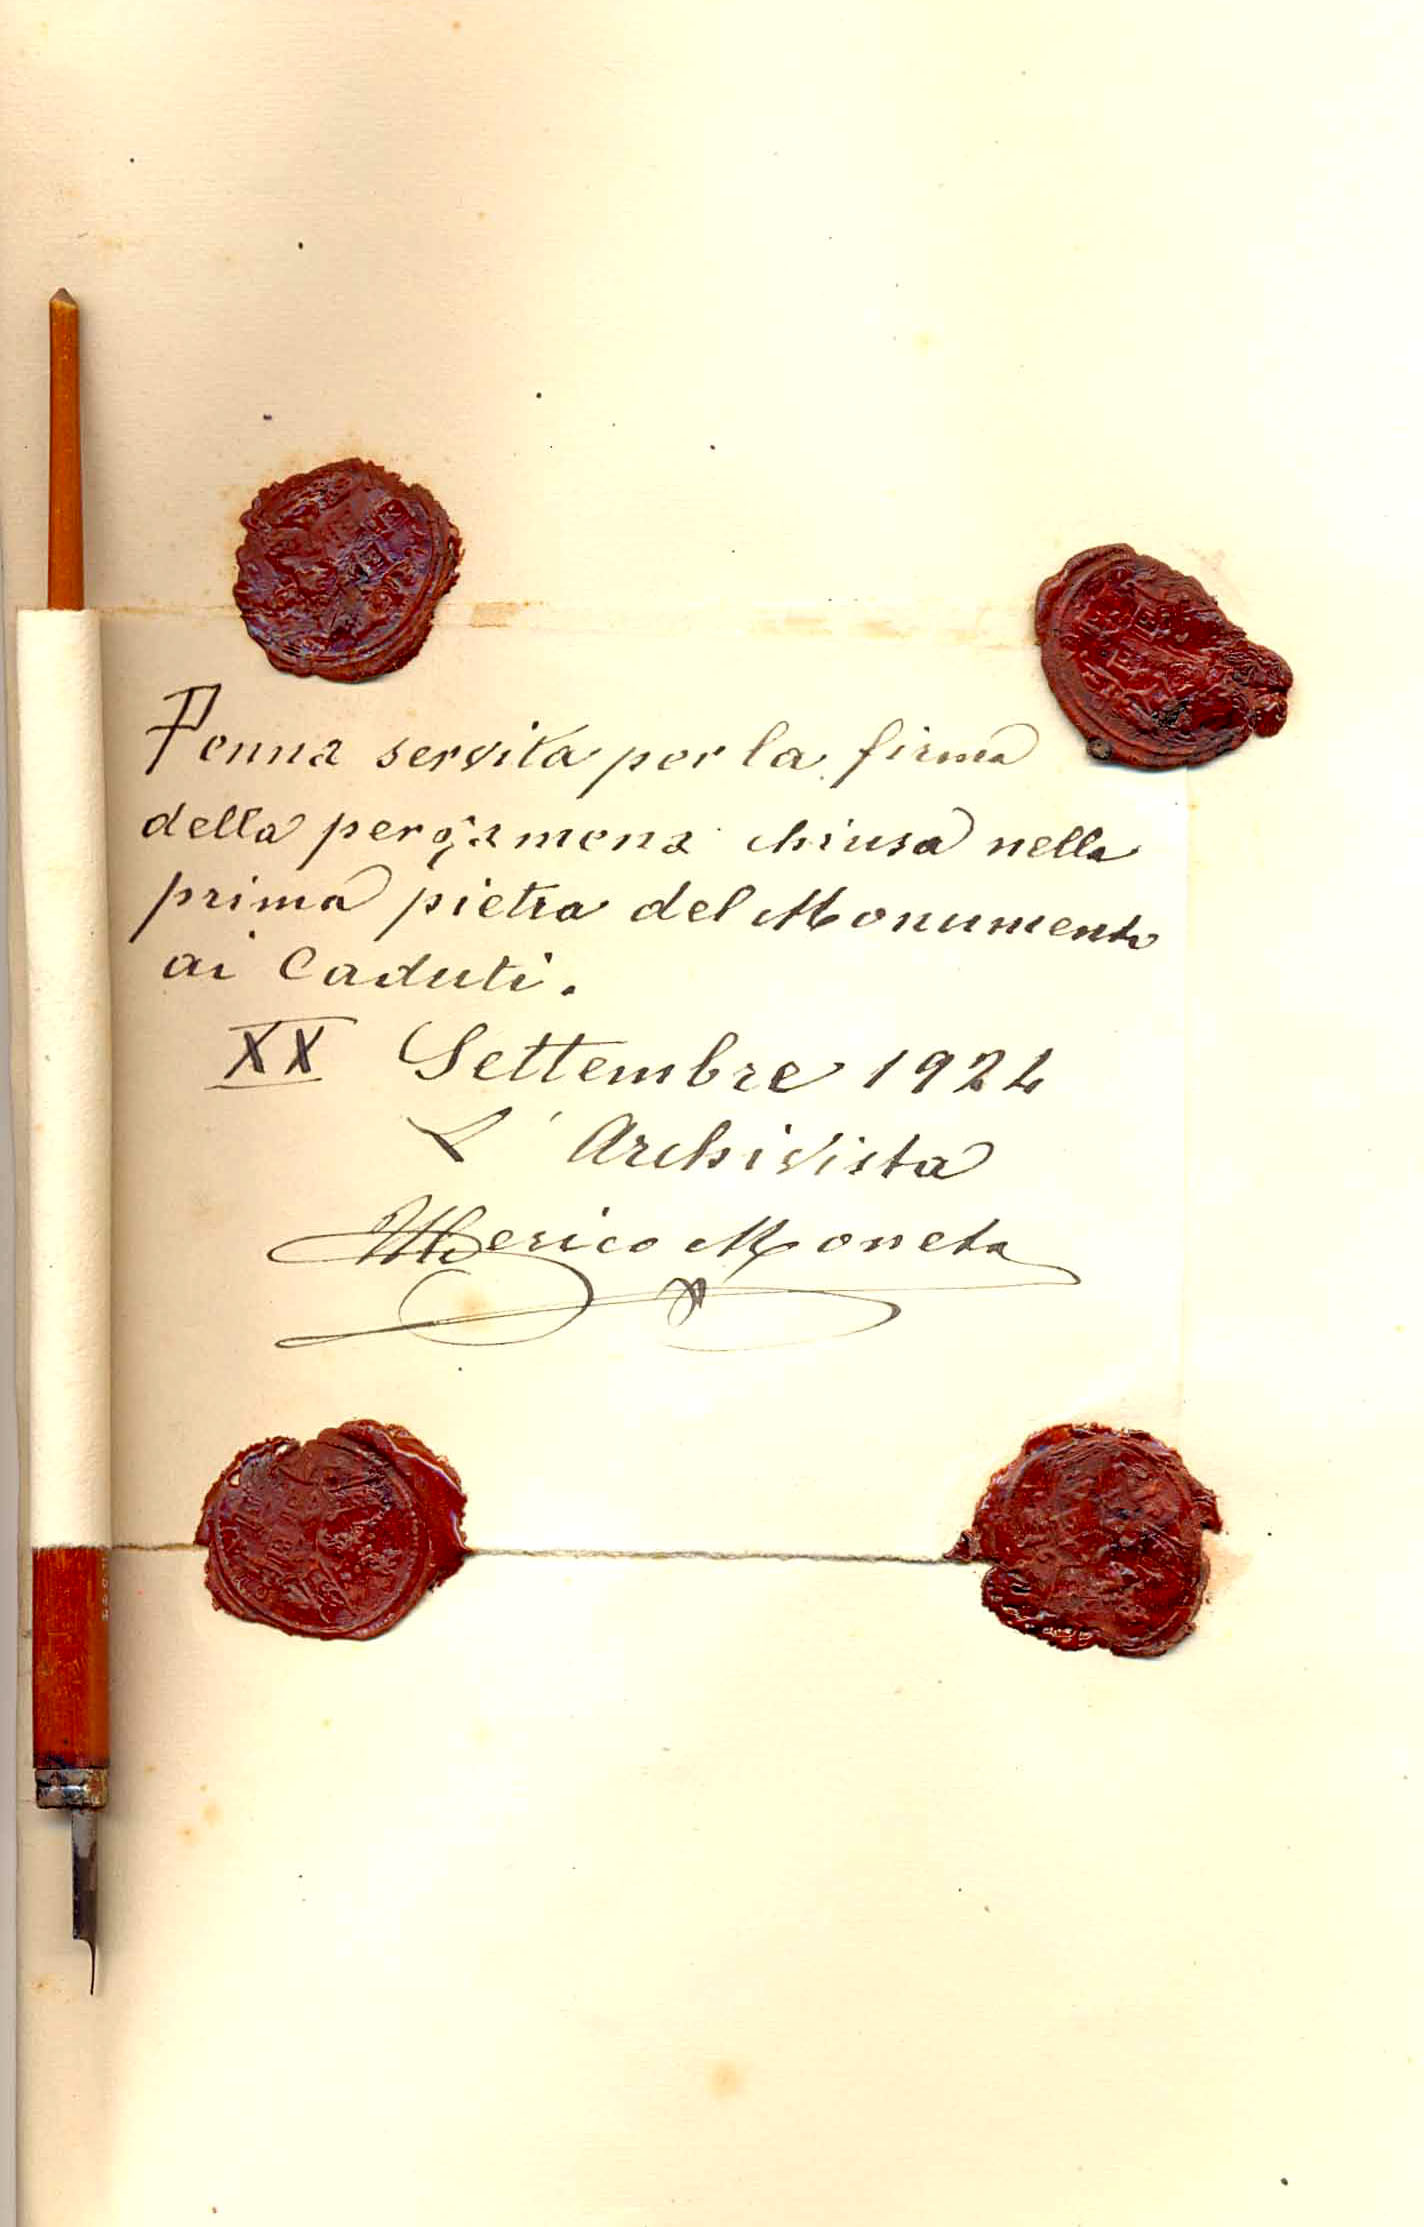 Penna servita per la firma
della pergamena chiusa nella
prima pietra del Monumento
ai Caduti.
XX Settembre 1924
L'Archivista
Moneta